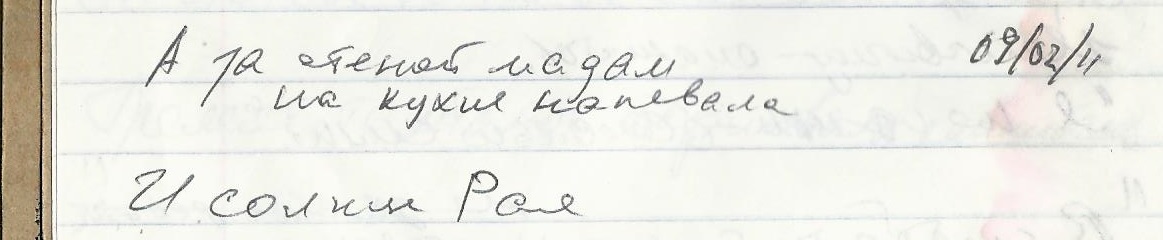 А за стеной мадам 09/02/11
на кухне напевала
И солнце Рая